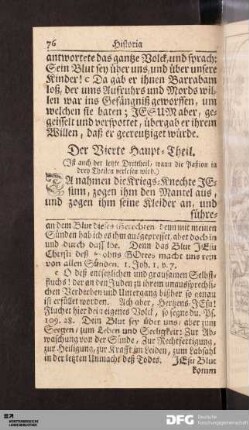 76 Historia
antwortete das gantze Volck, und sprach:
Sein Blut sey über uns, und über unsere
Kinder! c Da gab er ihnen Barrabam
loß, der ums Aufruhrs und Mords wil-
len war ins Gefängniß geworffen, um
welchen sie baten; JESUM aber, ge-
geisselt und verspottet, übergab er ihrem
Willen, daß er gecreutziget würde.
Der Vierte Haupt-Theil.
(Ist auch der letzte Dritttheil, wann die Paßion in
drey Theilen verlesen wird.)
DA nahmen die Kriegs-Knechte JE-
sum, zogen ihm den Mantel aus,
und zogen ihm seine Kleider an, und
führe-
an dem Blut dieses Gerechten, denn mit meinen
Sünden hab ich es ihm ausgepreßt, aber doch in
und durch das Blut JEsu
von allen Sünden. 1. Joh. 1. v. 7.
c O deß entsetzlichen und grausamen Selbst-
fluchs! der an den Juden zu ihrem unaussprechli-
chen Verderben und Untergang bißher so genau
ist erfüllet worden. Ach aber, Hertzens-JEsu!
Fluchet hier dein eigenes Volck, so segne du, Ps.
109. 28. Dein Blut sey über uns, aber zum
Seegen, zum Leben und Seeligkeit: Zur Ab-
waschung vor der Sünde, Zur Rechtfertigung,
zur Heiligung, zur Krafft im Leiden, zum Labsahl
in der letzten Unmacht deß Todes. JEsu Blut
komm
DFG